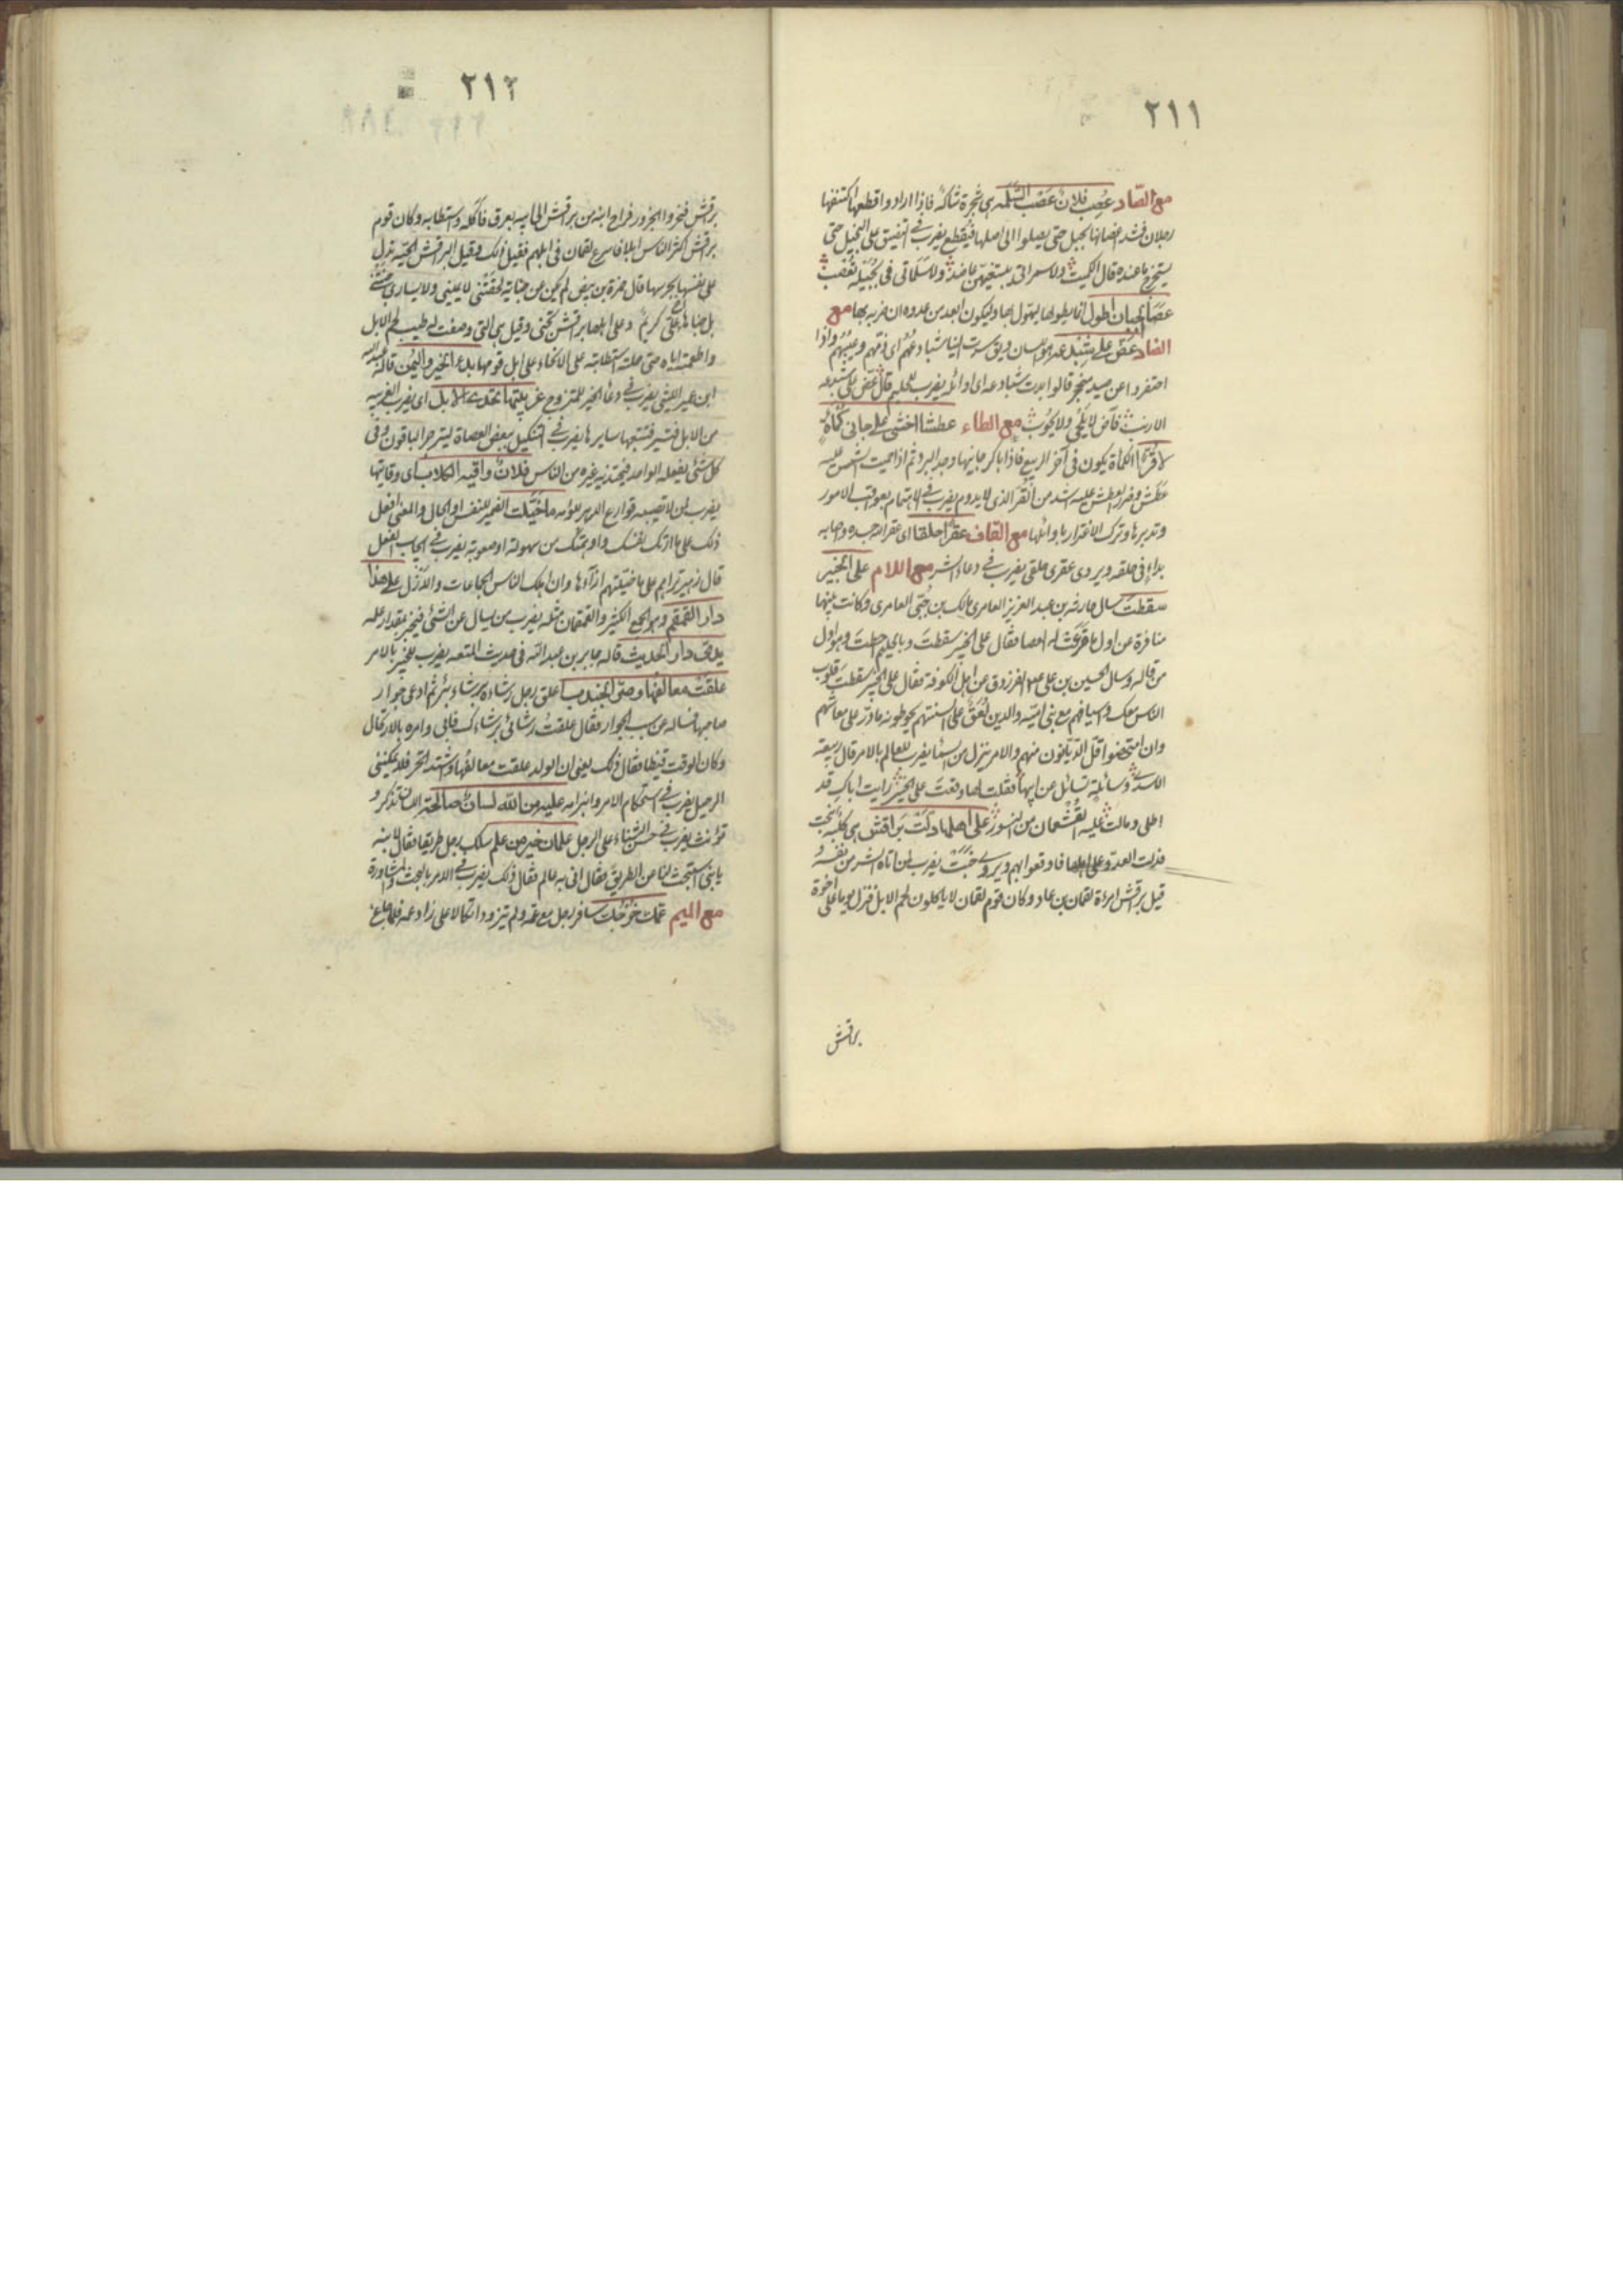 ٢١١
مع الصاد عُصِب فلانٌ عَصْبَ السَّلَمة هي شجرة شاكة فاذا ارادوا قطعها اكتنفها
رجلان فشد اغصانها بحبل حتى يصلوا الى اصلها فيقطع يضرب في التضييق على البخيل حتى
يستخرج ما عنده قال الكميت ولا سمراتي يبتغيهن عاضد ولا سلماتي في بجيلة تعصب
عصا الجبان اطول انما يطولها يهول بها وليكون ابعد من عدوه ان ضربه بها مع
الضاد عض على شبدعه هو اللسان ويق سرت الينا شبادعهم اي ذمهم وعيبهم واذا
احتفروا عن قالوا بدت شبادعه اي اوائله يضرب للحليم قال عض على شبدعه
الاريب فآض لا يلحي ولا يحوب مع الطاء عطشا اخشى على جاني كمأة
لا قرًّا الكمأة يكون في آخر الربيع فاذا باكر جانيها وجد البرد ثم اذا حميت الشمس عليه
عطش وضرر العطش عليه اشد من القر الذي لا يدوم يضرب في الاهتمام بعواقب الامور
وتدبرها وترك الاغترار باوائلها مع القاف عقرا حلقا اي عقر الله جسده واصابه
بداء في حلقه ويروى عقرى حلقى يضرب في دعاء الشر مع اللام على الخبير
سقطت سال حارثة بن عبد العزيز العامري مالك بن جبى العامري وكانت بينهما
منافرة عن اول ما قرعت له العصا فقال على الخبير سقطت وبالحليم احطت وهو اول
من قاله وسال الحسين بن علي الفرزدق عن اهل الكوفة فقال على الخبير سقطت قلوب
الناس معك واسيافهم مع بني امية والدين لعق على السنتهم يحوطونه ما در على معاشهم
وان امتحضوا قل الديانون منهم والامر ينزل من السما يضرب للعالم بالامر قال ربيعة
الاسدي وسائلة تسائل عن ابيها فقلت لها وقعت على الخبير رايت اباك قد
اطلى ومالت عليه القشعمان من النسور على اهلها دلت براقش هي كلبة نبحت
فدلت العدو على اهلها فاوقعوا بهم ويروى جنت يضرب لمن اتاه الشر من نفسه و
قيل براقش امراة لقمان بن عاد وكان قوم لقمان لا ياكلون لحم الابل فنزل يوما على اخوة
براقش
٢١٢
براقش فنحروا الجزور فراح ابنه من براقش الى ابيه بعرق فاكله واستطابه وكان قوم
براقش اكثر الناس ابلا فاسرع لقمان في ابلهم فقيل ذلك وقيل البراقش الحية تدل
على نفسها بجرسها قال حمزة بن بيض لم يكن عن جناية لحقتني لا يميني ولا يساري جنتني
بل جناها اخ علي كريم وعلى اهلها براقش تجني وقيل هي التي وصفت له طيب لحم الابل
واطعمته اياه حتى حملته استطابته على الانحاء على ابل قومها بدء الخير واليمن قاله عبد الله
ابن عمير الليثي يضرب في دعاء الخير للمتزوج على تحتذي الابل اي يضرب الغريبة
من الابل فتسير فتتبعها سايرها يضرب في التنكيل ببعض العصاة لينزجر الباقون وفي
كل شيء يفعله الواحد فيحتذي به غيره من الناس فلان واقية الكلاب اي وقايتها
يضرب لمن لا تصيبه قوارع الدهر ما خيلت الضمير للنفس او الحال والمعنى افعل
ذلك على ما ارتك نفسك واوهمتك من سهولة او صعوبة يضرب في ايجاب الفعل
قال زهير تراهم على ما خيلتهم ازاءها وان اهلك الناس المجاعات والازل على هذا
دار القمقم وهو الجمع الكثير والقمقمان مثله يضرب من يسال عن الشيء فيخبر بمقدار علمه
يدي دار الحديث قاله جابر بن عبد الله في حديث المتعة يضرب للخبير بالامر
علقت معالقها وصر الجندب اعلق رجل رشاءه برشاء بئر ثم ادعى جوار
صاحبها فساله عن سبب الجوار فقال علقت رشائي برشائك فابى وامره بالارتحال
وكان الوقت قيظا فقال ذلك يعني ان الدلو علقت معالقها واشتد الحر فلا يمكنني
الرحيل يضرب في استحكام الامر وانبرامه عليه من الله لسان صالحة اللسان تذكر و
تؤنث يضرب في حسن الثناء على الرجل علمان خير من علم سلك رجل طريقا فقال لابنه
يا بني استبحث لنا عن الطريق فقال اني به عالم فقال ذلك يضرب في الامر بالبحث والمشاورة
مع الميم عمك خرجك سافر رجل مع عمه ولم يتزود اتكالا على زاد عمه فلما جاع